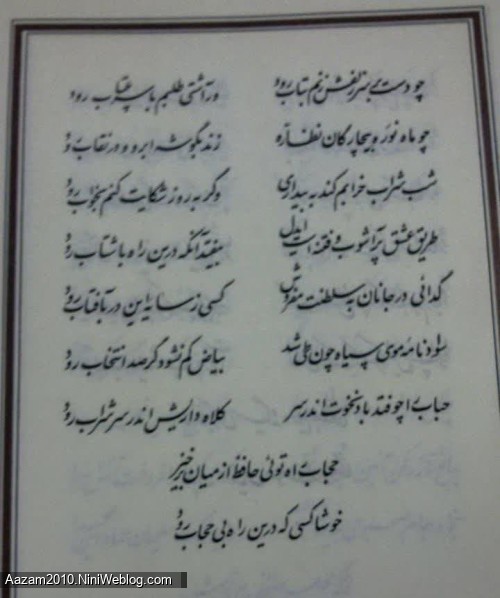 چو دست بر سر زلفش زنم بتاب رود ور آشتی طلبم با سر عتاب رود
چو ماه نو ره بیچارگان نظاره زند بگوشه ابرو و در نقاب رود
شب شراب خرابم کند به بیداری وگر به روز شکایت کنم بخواب رود
طریق عشق پر آشوب و فتنه است ایدل بیفتد آنکه درین راه با شتاب رود
گدائی در جانان به سلطنت مفروش کسی ز سایه این در بآفتاب رود
سواد نامه موی سیاه چون طی شد بیاض کم نشود گر صد انتخاب رود
حباب را چو فتد باد نخوت اندر سر کلاه داریش اندر سر شراب رود
حجاب راه توئی حافظ از میان برخیز
خوشا کسی که درین راه بی حجاب رود
Aazam2010.NiniWeblog.com